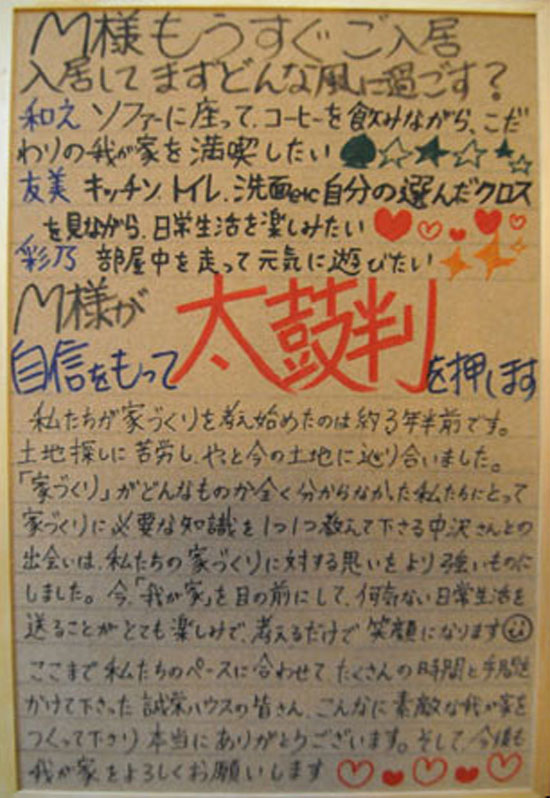 M様もうすぐご入居
入居してまずどんな風に過ごす?
和え ソファーに座って、コーヒーを飲みながら、こだ
わりの我が家を満喫したい
友美 キッチン、トイレ、洗面etc自分の選んだクロス
を見ながら、日常生活を楽しみたい
彩乃 部屋中を走って元気に遊びたい
M様が
自信をもって太鼓判を押します
私たちが家づくりを考え始めたのは約3年半前です。
土地探しに苦労し、やっと今の土地に巡り合いました。
「家づくり」がどんなものか全く分からなかった私たちにとって
家づくりに必要な知識を1つ1つ教えて下さる中沢さんとの
出会いは、私たちの家づくりに対する思いをより強いものに
しました。今、「我が家」を目の前にして、何気ない日常生活を
送ることがとても楽しみで、考えるだけで笑顔になります
ここまで私たちのペースに合わせてたくさんの時間と手間を
かけて下さった誠栄ハウスの皆さん、こんなに素敵な我が家を
つくって下さり本当にありがとうございます。そして、今後も
我が家をよろしくお願いします